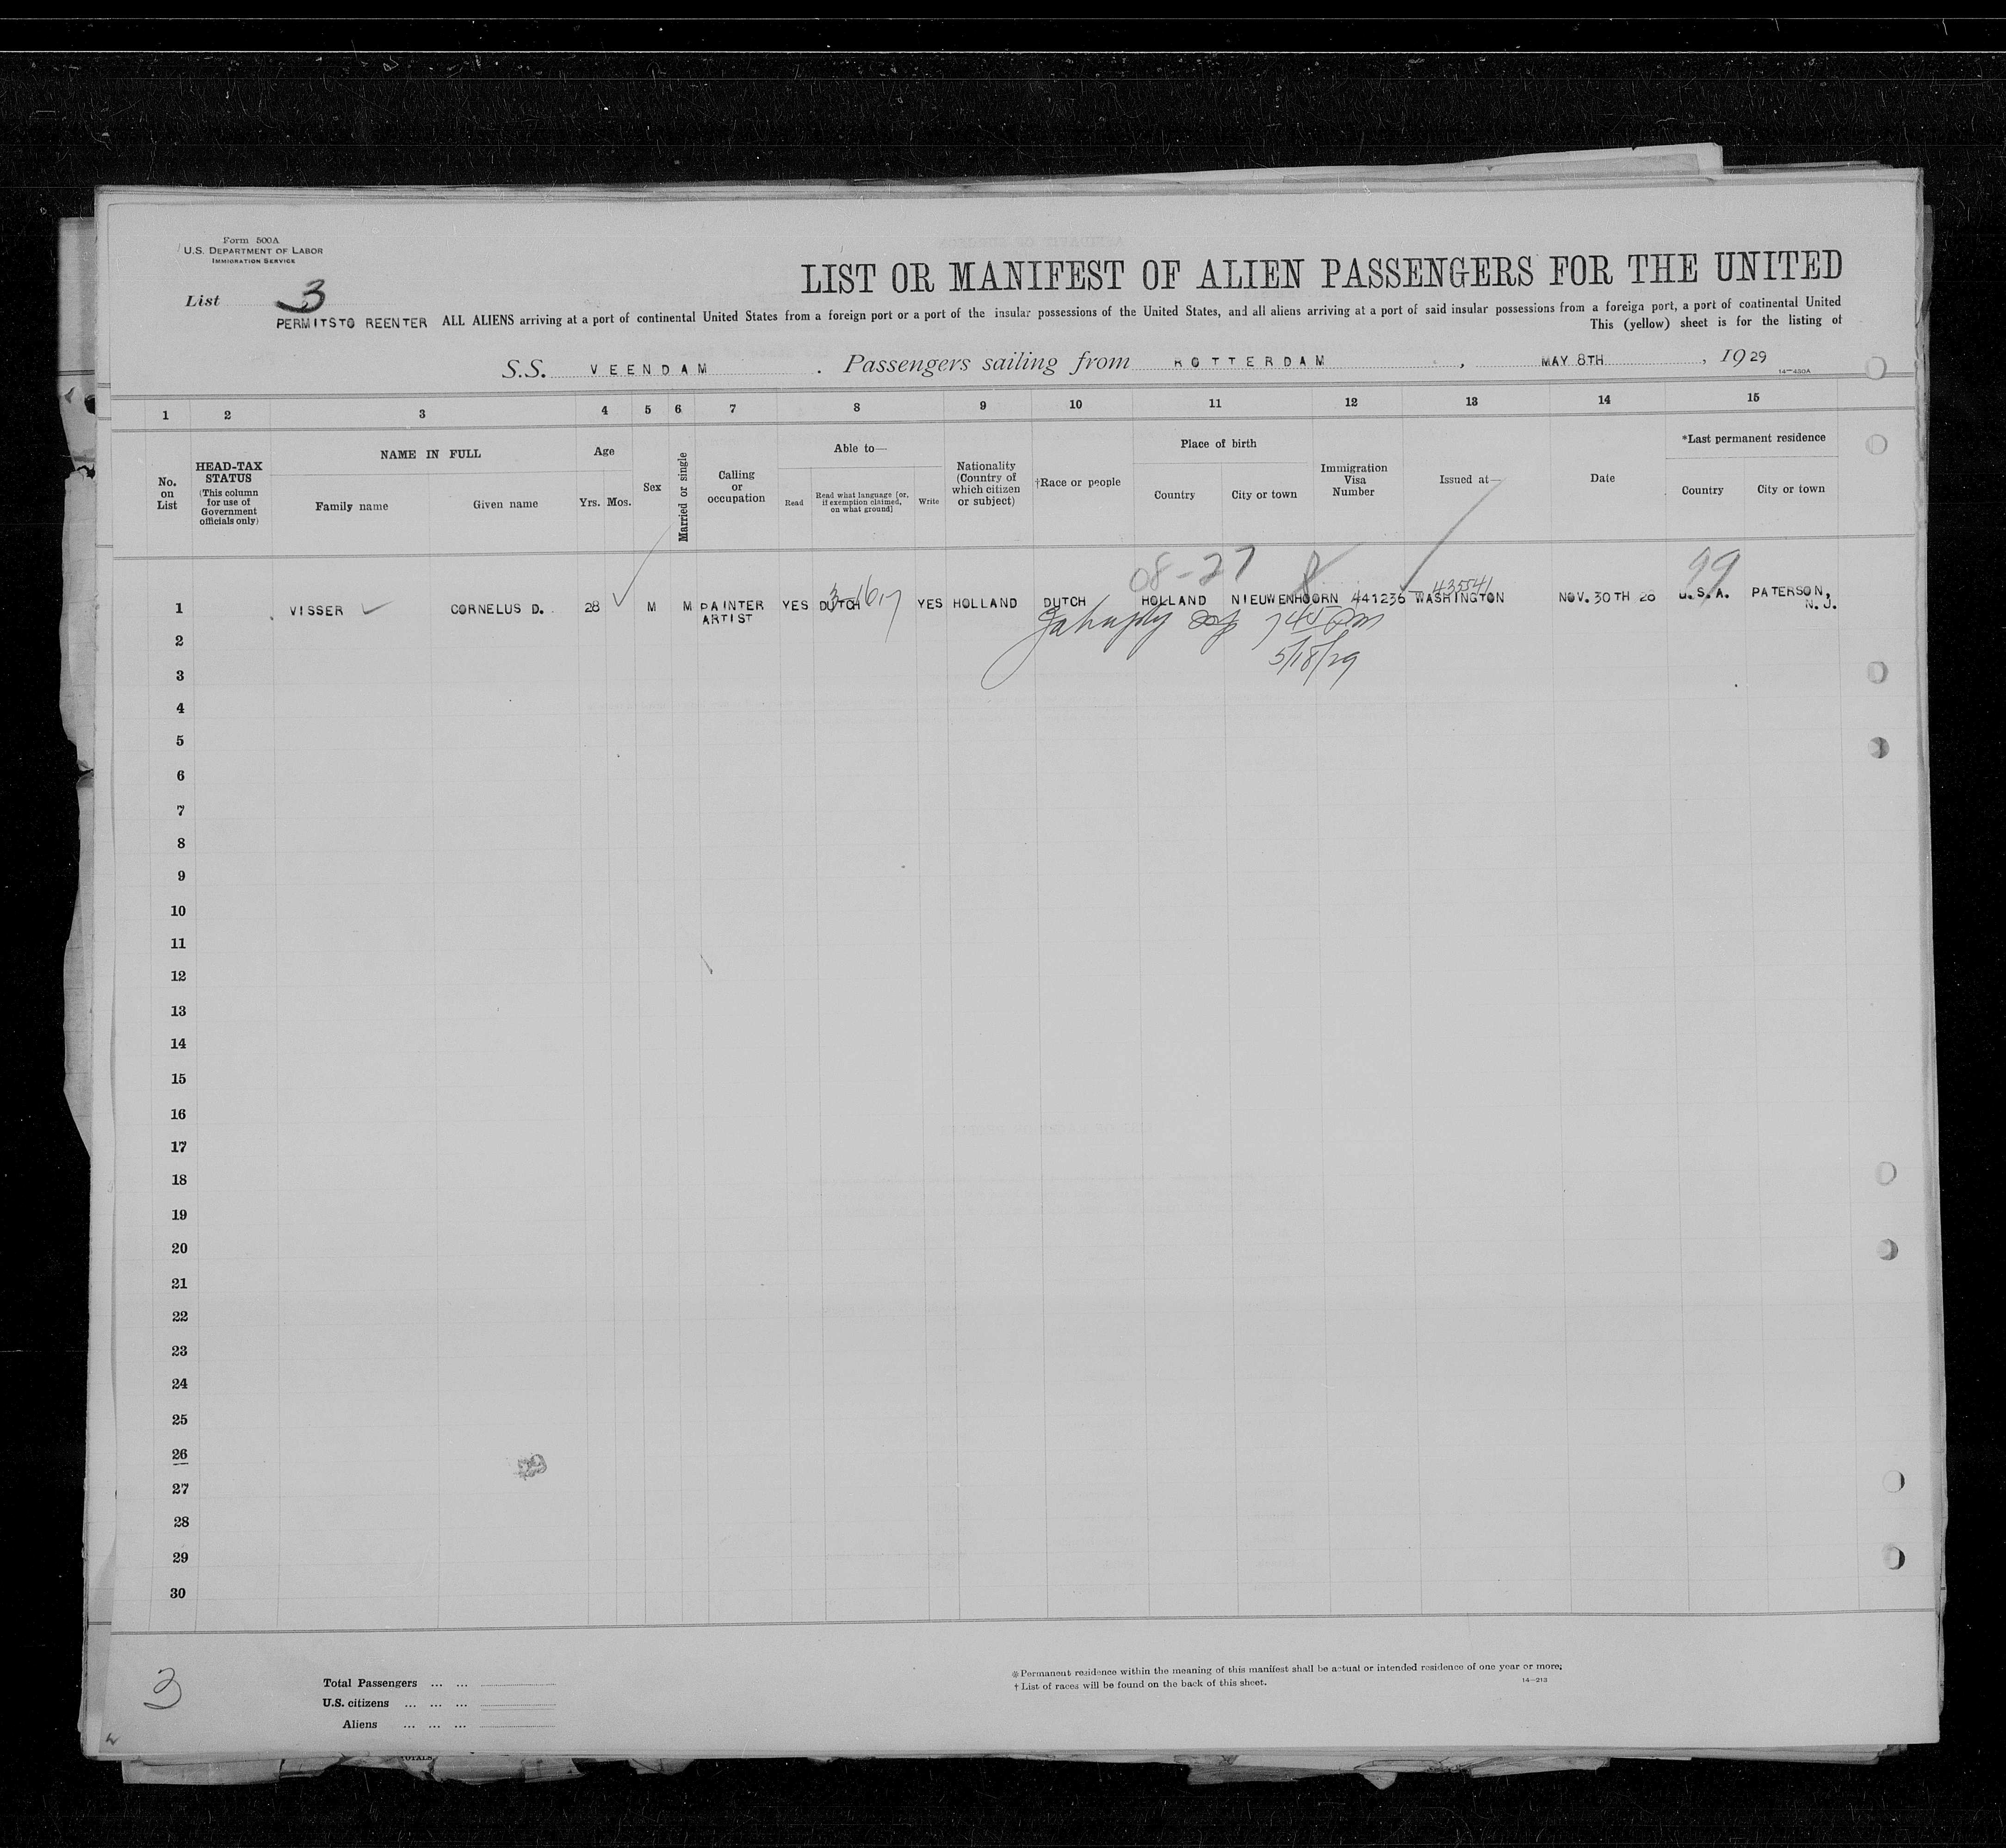 Form 500A
U.S. DEPARTMENT OF LABOR
IMMIGRATION SERVICE
List 3
LIST OR MANIFEST OF ALIEN PASSENGERS FOR THE UNITED
PERMITSTO REENTER ALL ALIENS arriving at a port of continental United States from a foreign port or a port of the insular possessions of the United States, and all aliens arriving at a port of said insular possessions from a foreign port, a port of continental United
This (yellow) sheet is for the listing of
S.S. VEENDAM. Passengers sailing from ROTTERDAM, MAY 8TH, 1929
14—430A
1 2 3 4 5 6 7 8 9 10 11 12 13 14 15
No. on List
HEAD-TAX STATUS
(This column for use of Government officials only)
NAME IN FULL
Family name Given name
Age
Yrs. Mos.
Sex
Married or single
Calling or occupation
Able to—
Read
Read what language [or, if exemption claimed, on what ground]
Write
Nationality (Country of which citizen or subject)
†Race or people
Place of birth
Country City or town
Immigration Visa Number
Issued at—
Date
*Last permanent residence
Country City or town
08-27 99
3-1617 435541
1 VISSER CORNELUS D. 28 M M PAINTER YES DUTCH YES HOLLAND DUTCH HOLLAND NIEUWENHOORN 441236 WASHINGTON NOV. 30TH 28 U.S.A. PATERSON,
ARTIST N. J.
745 Pm
5/18/29
2
3
4
5
6
7
8
9
10
11
12
13
14
15
16
17
18
19
20
21
22
23
24
25
26
27
28
29
30
3
Total Passengers
U.S. citizens
Aliens
*Permanent residence within the meaning of this manifest shall be actual or intended residence of one year or more;
†List of races will be found on the back of this sheet.
14—213
TOTALS